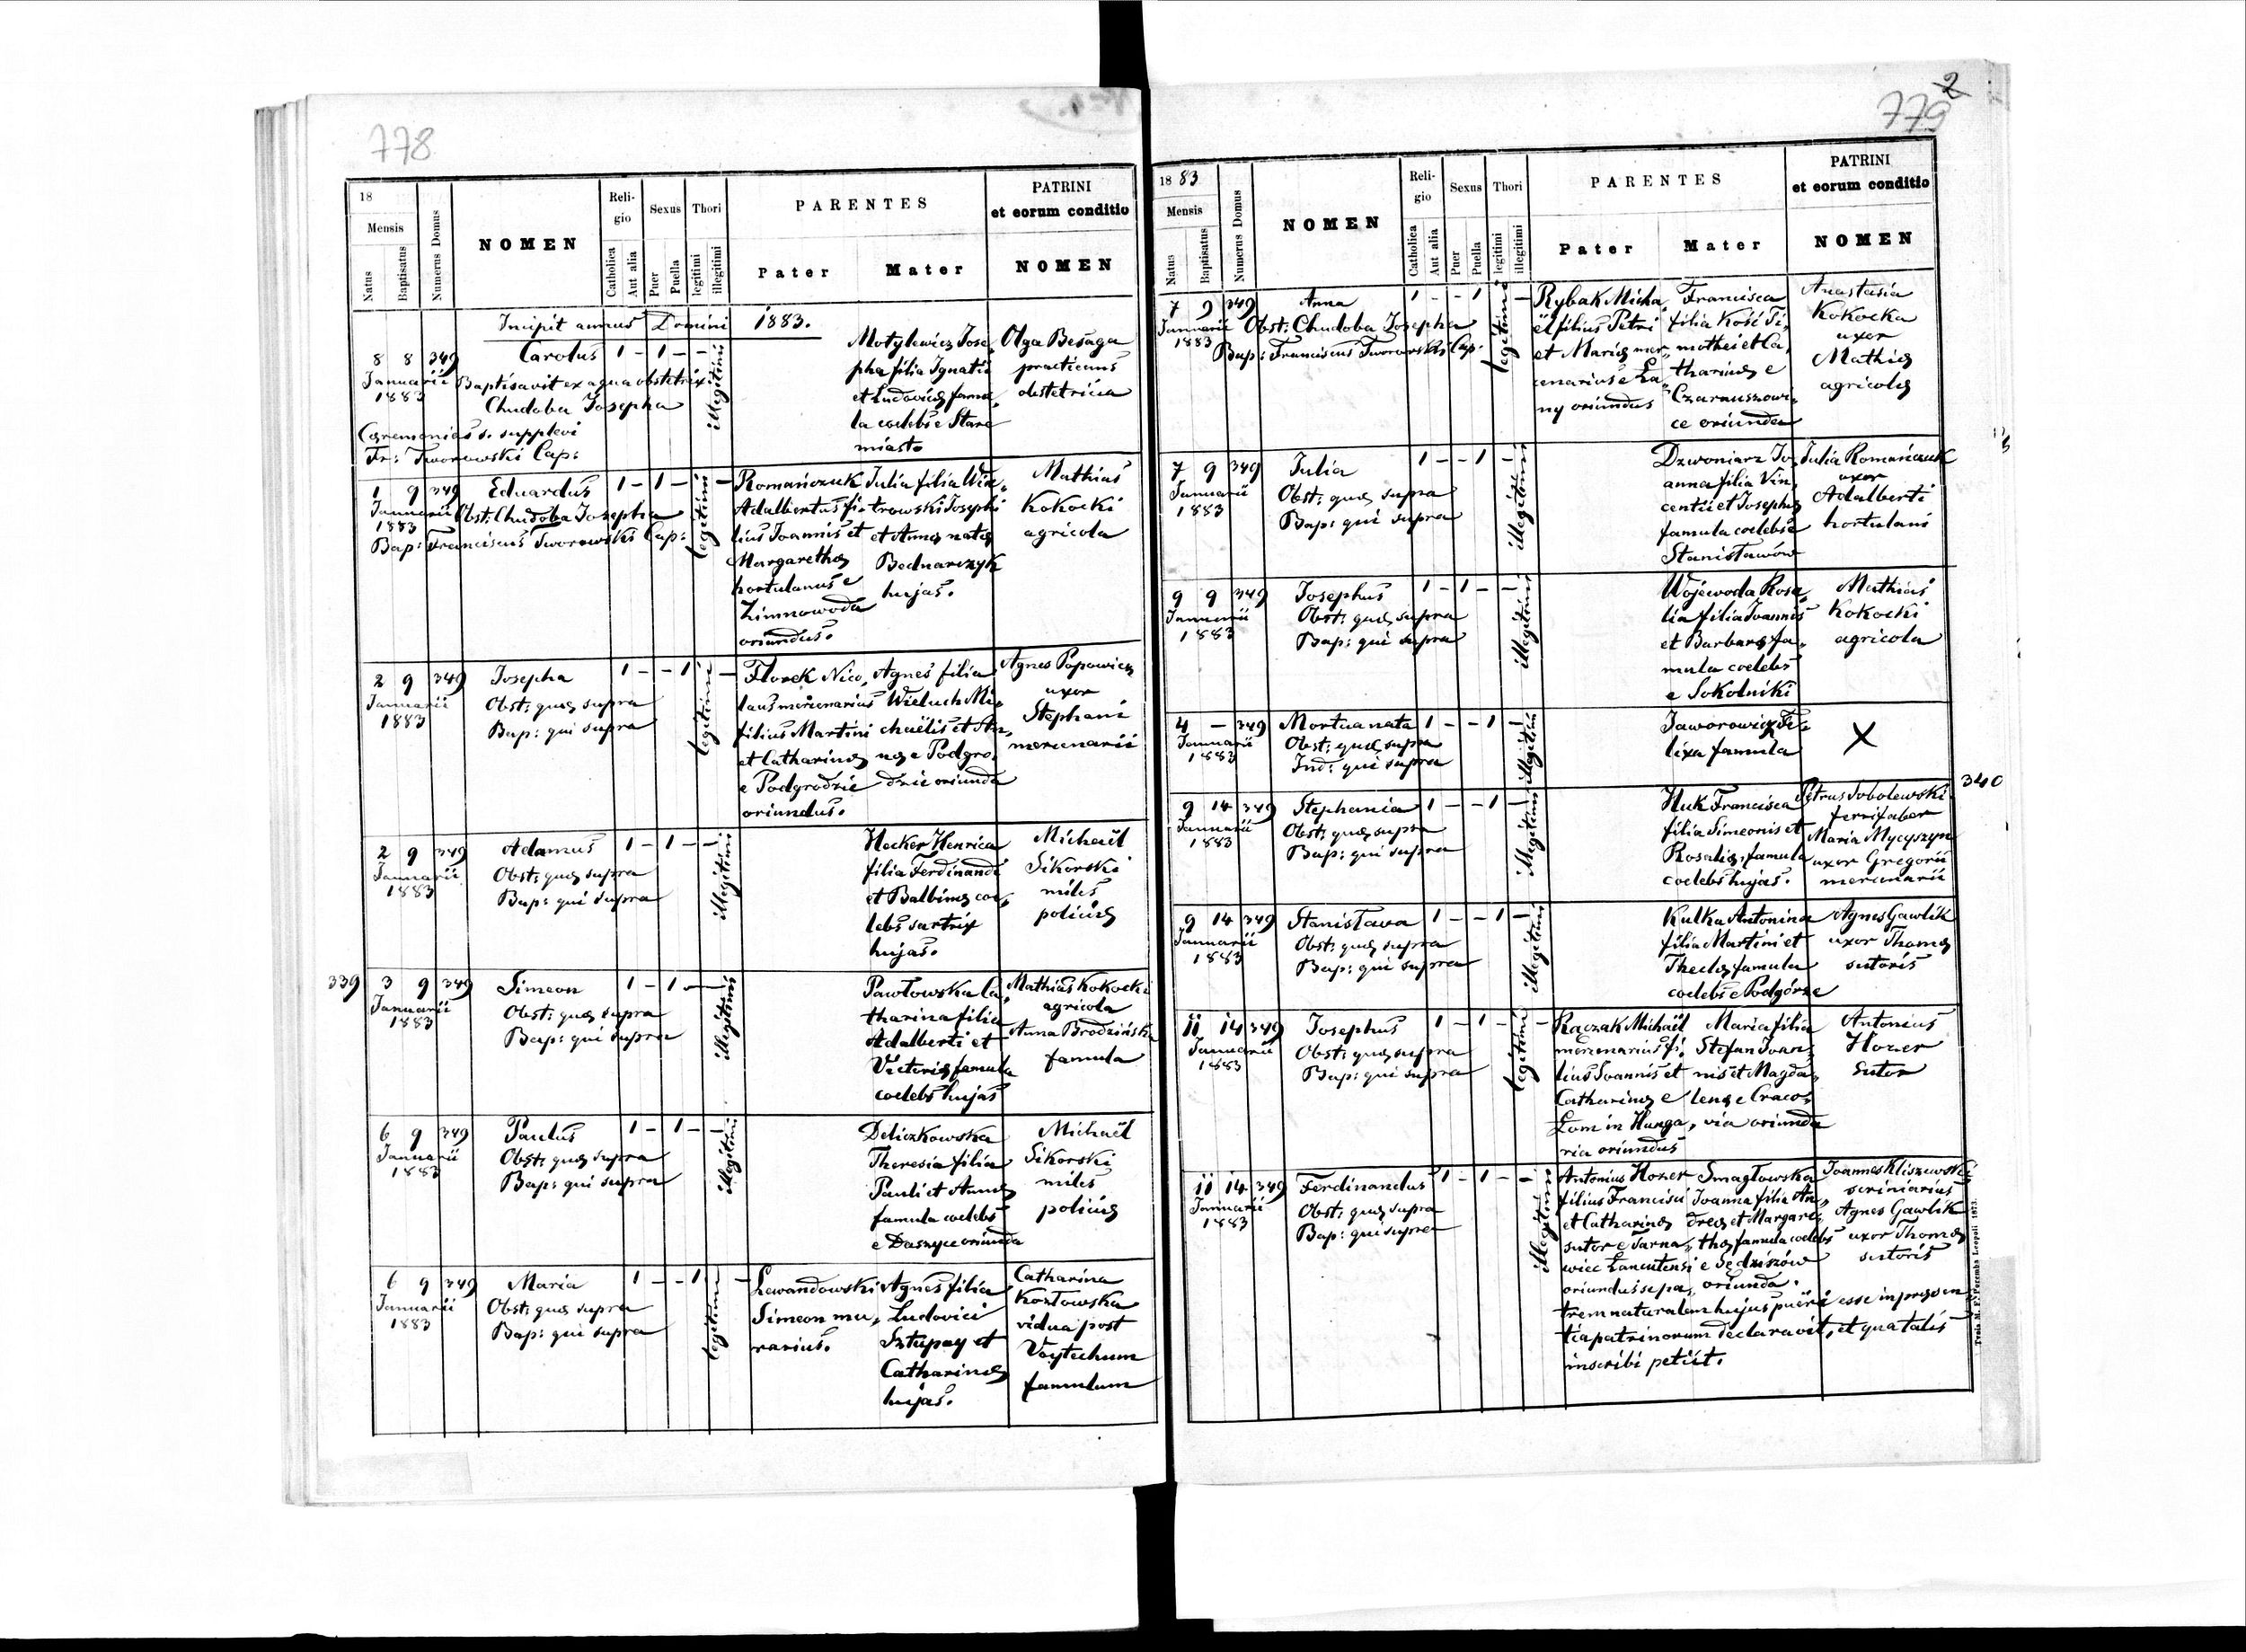 778
18
Mensis
Natus
Baptisatus
Numerus Domus
NOMEN
Reli-
gio
Catholica
Aut alia
Sexus
Puer
Puella
Thori
legitimi
illegitimi
PARENTES
Pater
Mater
PATRINI
et eorum conditio
NOMEN
Incipit annus Domini 1883.
8 8 349
Januarii
1883
Carolus
Baptisavit ex aqua obstetrix
Chudoba Josepha
Caeremonias s. supplevi
Fr: Tworowski Cap:
1 - 1 - -
illegitimi
Motylewicz Jose,
pha filia Ignatii
et Ludovicæ famu,
la coelebs e Stare
miasto
Olga Besaga
practicans
obstetricia
1 9 349
Januarii
1883
Eduardus
Obst: Chudoba Josepha
Bap: Franciscus Tworowski Cap:
1 - 1 - -
legitimi
Romańczuk
Adalbertus fi-
lius Joannis et
Margarethæ
hortulanus e
Zimnowoda
oriundus.
Julia filia Win,
trowski Josephi
et Annæ natæ
Bednarczyk
hujas.
Mathias
Kokocki
agricola
2 9 349
Januarii
1883
Josepha
Obst: quæ supra
Bap: qui supra
1 - - 1 -
legitimi
Florek Nico,
laus mercenarius
filius Martini
et Catharinæ
e Podgrodzie
oriundus.
Agnes filia
Wieluch Mi,
chaëlis et An,
næ e Podgro,
dzie oriunda
Agnes Popowicz
uxor
Stephani
mercenarii
2 9 349
Januarii
1883
Adamus
Obst: quæ supra
Bap: qui supra
1 - 1 - -
illegitimi
Hecker Henrica
filia Ferdinandi
et Balbinæ coe,
lebs sartrix
hujas.
Michaël
Sikorski
miles
policiæ
339
3 9 349
Januarii
1883
Simeon
Obst: quæ supra
Bap: qui supra
1 - 1 - -
illegitimi
Pawłowska Ca,
tharina filia
Adalberti et
Victoriæ famula
coelebs hujas
Mathias Kokocki
agricola
Anna Brodzińska
famula
6 9 349
Januarii
1883
Paulus
Obst: quæ supra
Bap: qui supra
1 - 1 - -
illegitimi
Deliczkowska
Theresia filia
Pauli et Annæ
famula coelebs
e Daszyce oriunda
Michaël
Sikorski
miles
policiæ
6 9 349
Januarii
1883
Maria
Obst: quæ supra
Bap: qui supra
1 - - 1 -
legitimi
Lewandowski
Simeon mu,
rarius.
Agnes filia
Ludovici
Sztupay et
Catharinæ
hujas.
Catharina
Kozłowska
vidua post
Voytechum
famulum
779
2
18 83
Mensis
Natus
Baptisatus
Numerus Domus
NOMEN
Reli-
gio
Catholica
Aut alia
Sexus
Puer
Puella
Thori
legitimi
illegitimi
PARENTES
Pater
Mater
PATRINI
et eorum conditio
NOMEN
7 9 349
Januarii
1883
Anna
Obst: Chudoba Josepha
Bap: Franciscus Tworowski Cap:
1 - - 1 -
legitimi
Rybak Micha,
ël filius Petri
et Mariæ mer,
cenarius e Ła,
ny oriundus
Francisca
filia Kość Ti,
mothei et Ca,
tharinæ e
Czarnuszowi,
ce oriunda
Anastasia
Kokocka
uxor
Mathiæ
agricolæ
7 9 349
Januarii
1883
Julia
Obst: quæ supra
Bap: qui supra
1 - - 1 -
illegitimi
Dzwoniarz Jo,
anna filia Vin,
centii et Josephæ
famula coelebs e
Stanisławów
Julia Romańczuk
uxor
Adalberti
hortulani
9 9 349
Januarii
1883
Josephus
Obst: quæ supra
Bap: qui supra
1 - 1 - -
illegitimi
Wojewoda Rosa,
lia filia Joannis
et Barbaræ fa,
mula coelebs
e Sokolniki
Mathias
Kokocki
agricola
4 - 349
Januarii
1883
Mortua nata
Obst: quæ supra
Ind: qui supra
1 - - 1 -
illegitimi
Jaworowicz Fe,
lixa famula
X
340
9 14 349
Januarii
1883
Stephania
Obst: quæ supra
Bap: qui supra
1 - - 1 -
illegitimi
Huk Francisca
filia Simeonis et
Rosaliæ, famula
coelebs hujas.
Petrus Sobolewski
ferrifaber
Maria Mycyszyn
uxor Gregorii
mercenarii
9 14 349
Januarii
1883
Stanisława
Obst: quæ supra
Bap: qui supra
1 - - 1 -
illegitimi
Kulka Antonina
filia Martini et
Theclæ famula
coelebs e Podgórze
Agnes Gawlik
uxor Thomæ
sutoris
11 14 349
Januarii
1883
Josephus
Obst: quæ supra
Bap: qui supra
1 - 1 - -
legitimi
Raczak Michaël
mercenarius fi,
lius Joannis et
Catharinæ e
Łom in Hunga,
ria oriundus
Maria filia
Stefan Joan,
nis et Magda,
lenæ e Craco,
via oriunda
Antonius
Hozer
sutor
11 14 349
Januarii
1883
Ferdinandus
Obst: quæ supra
Bap: qui supra
1 - 1 - -
illegitimi
Antonius Hozer
filius Francisci
et Catharinæ
sutor e Tarna,
wiec Łancutensi
oriundus se pa,
Smagłowska
Joanna filia An,
dreæ et Margare,
thæ famula coelebs
e Sędziszów
oriunda.
trem naturalem hujus pueri esse in præsen,
tia patrinorum declaravit, et qua talis
inscribi petiit.
Joannes Kliszewski
scriniarius
Agnes Gawlik
uxor Thomæ
sutoris